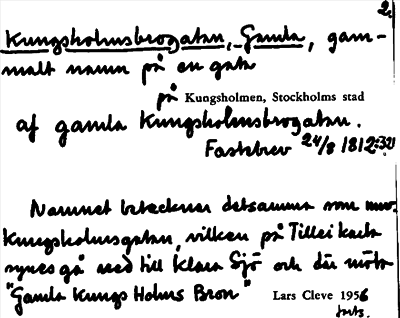 2.
Kungsholmsbrogatan, Gamla, gam-
malt namn på en gata
på Kungsholmen, Stockholms stad
af gamla Kungsholmsbrogatan.
Fastebrev 24/8 1812:321
Namnet betecknar detsamma som nuv.
Kungsholmsgatan, vilken på Tillei karta
synes gå ned till Klara Sjö och där möta
"Gamla Kungs Holms Bron"
Lars Cleve 1956